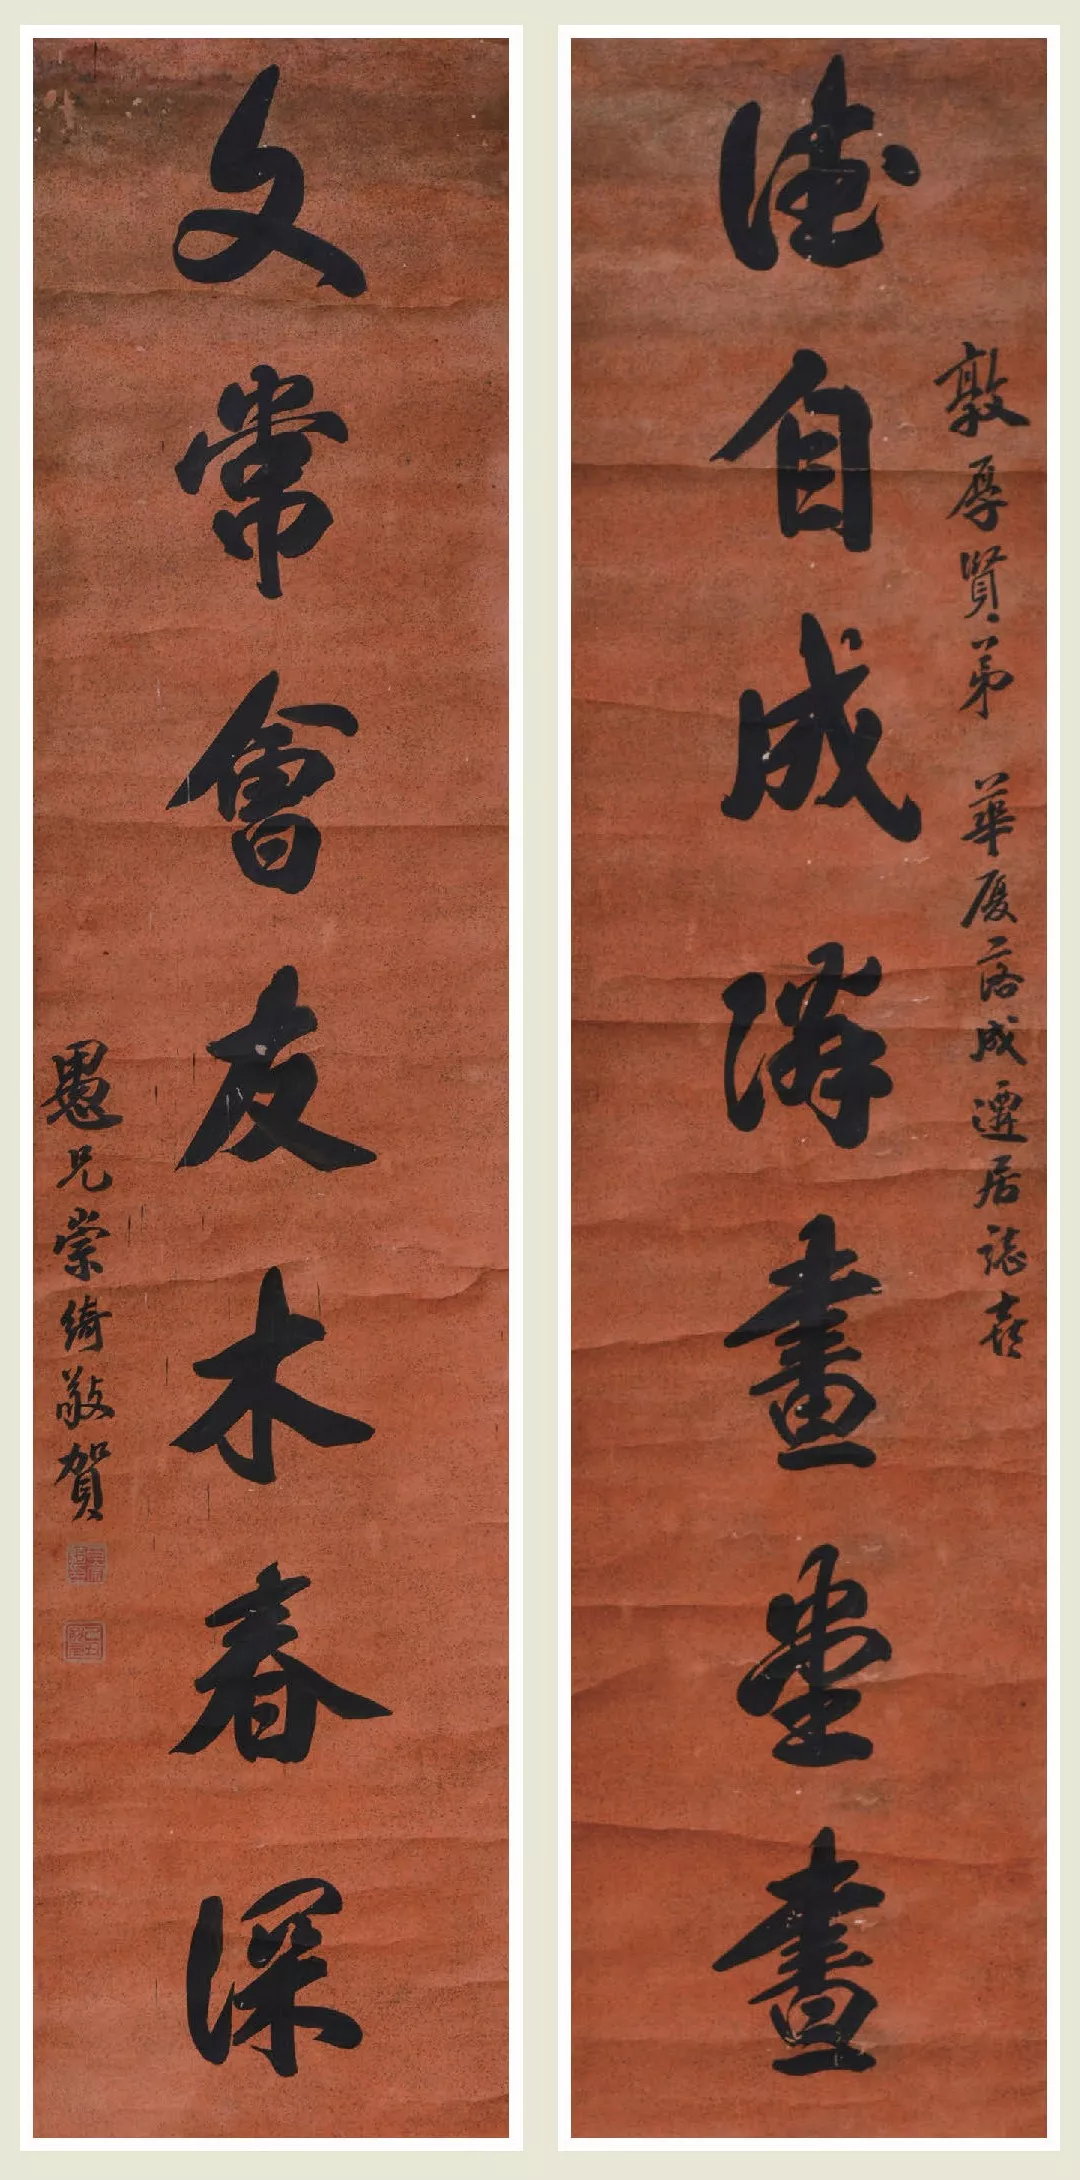 敦厚賢弟 華廈落成遷居誌喜
德自成隣畫堂晝
文常會友木春深
愚兄崇綺敬賀